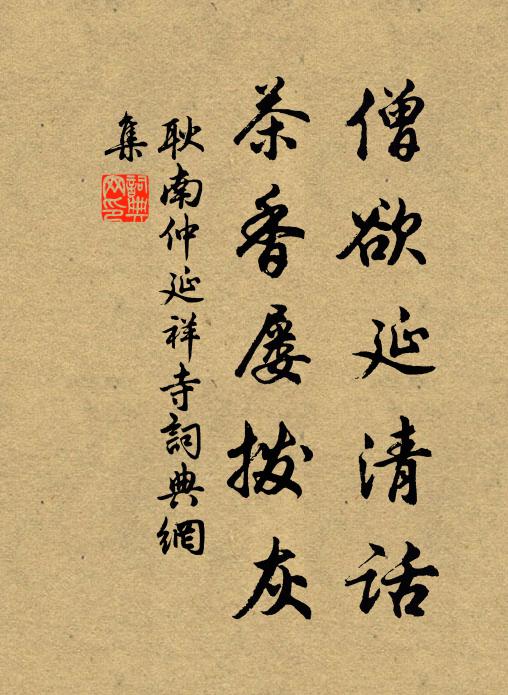 僧欲延清話
茶香屡拨灰
耿南仲延祥寺詞典網
集
詞典網印